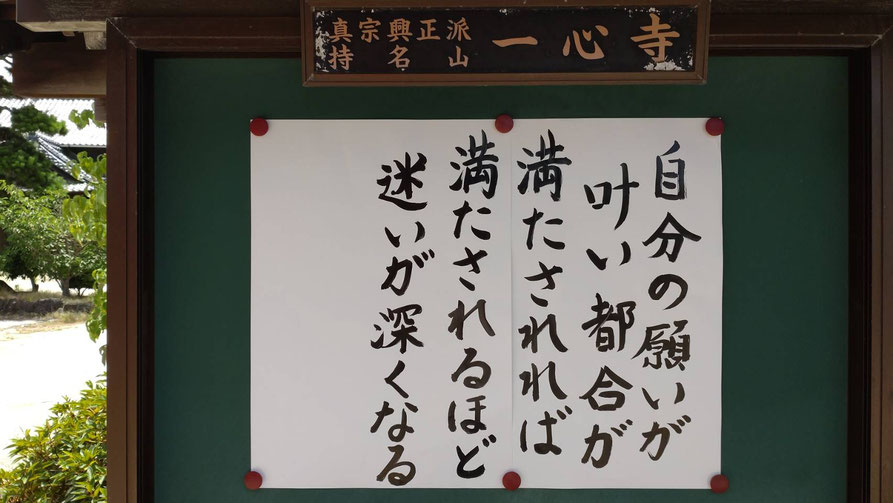 真宗興正派
持名山
一心寺
自分の願いが
叶い都合が
満たされれば
満たされるほど
迷いが深くなる